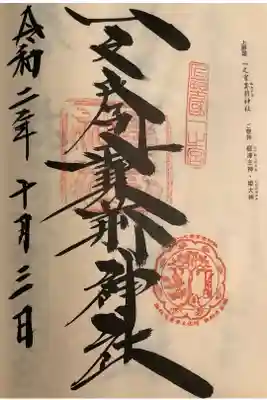 上野國 一之宮貫前神社
ご祭神 経津主神・姫大神
一之宮貫前神社
令和二年 十月三日